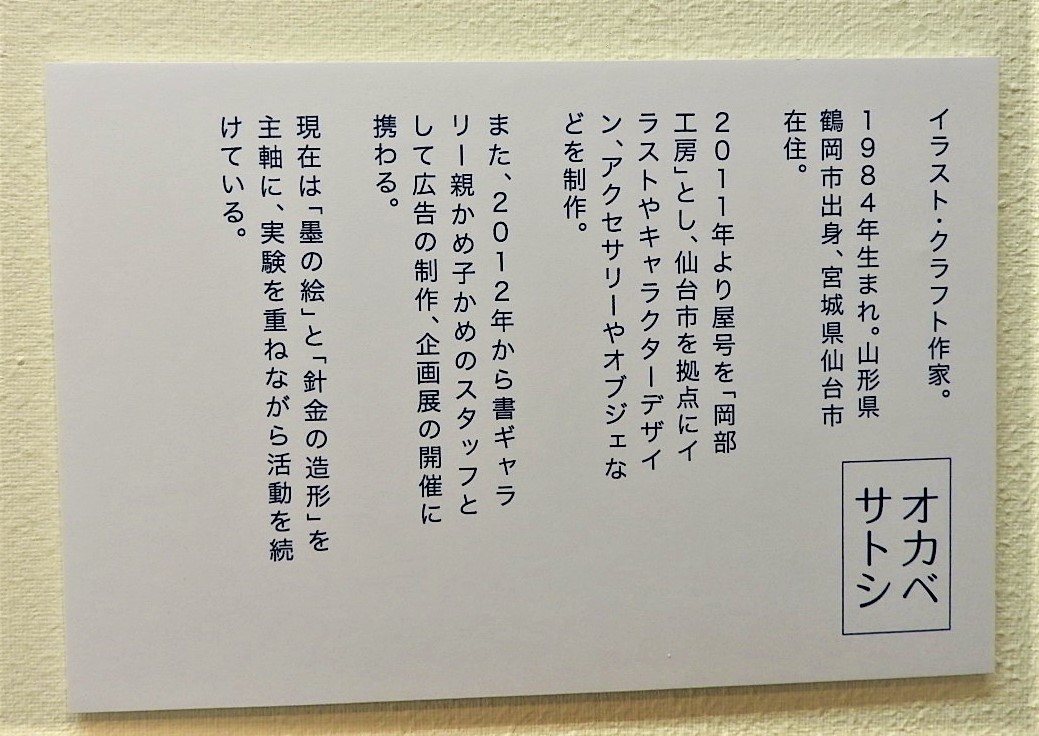 イラスト・クラフト作家。
1984年生まれ。山形県
鶴岡市出身、宮城県仙台市
在住。
2011年より屋号を「岡部
工房」とし、仙台市を拠点にイ
ラストやキャラクターデザイ
ン、アクセサリーやオブジェな
どを制作。
また、2012年から書ギャラ
リー親かめ子かめのスタッフと
して広告の制作、企画展の開催に
携わる。
現在は「墨の絵」と「針金の造形」を
主軸に、実験を重ねながら活動を続
けている。
オカベ
サトシ